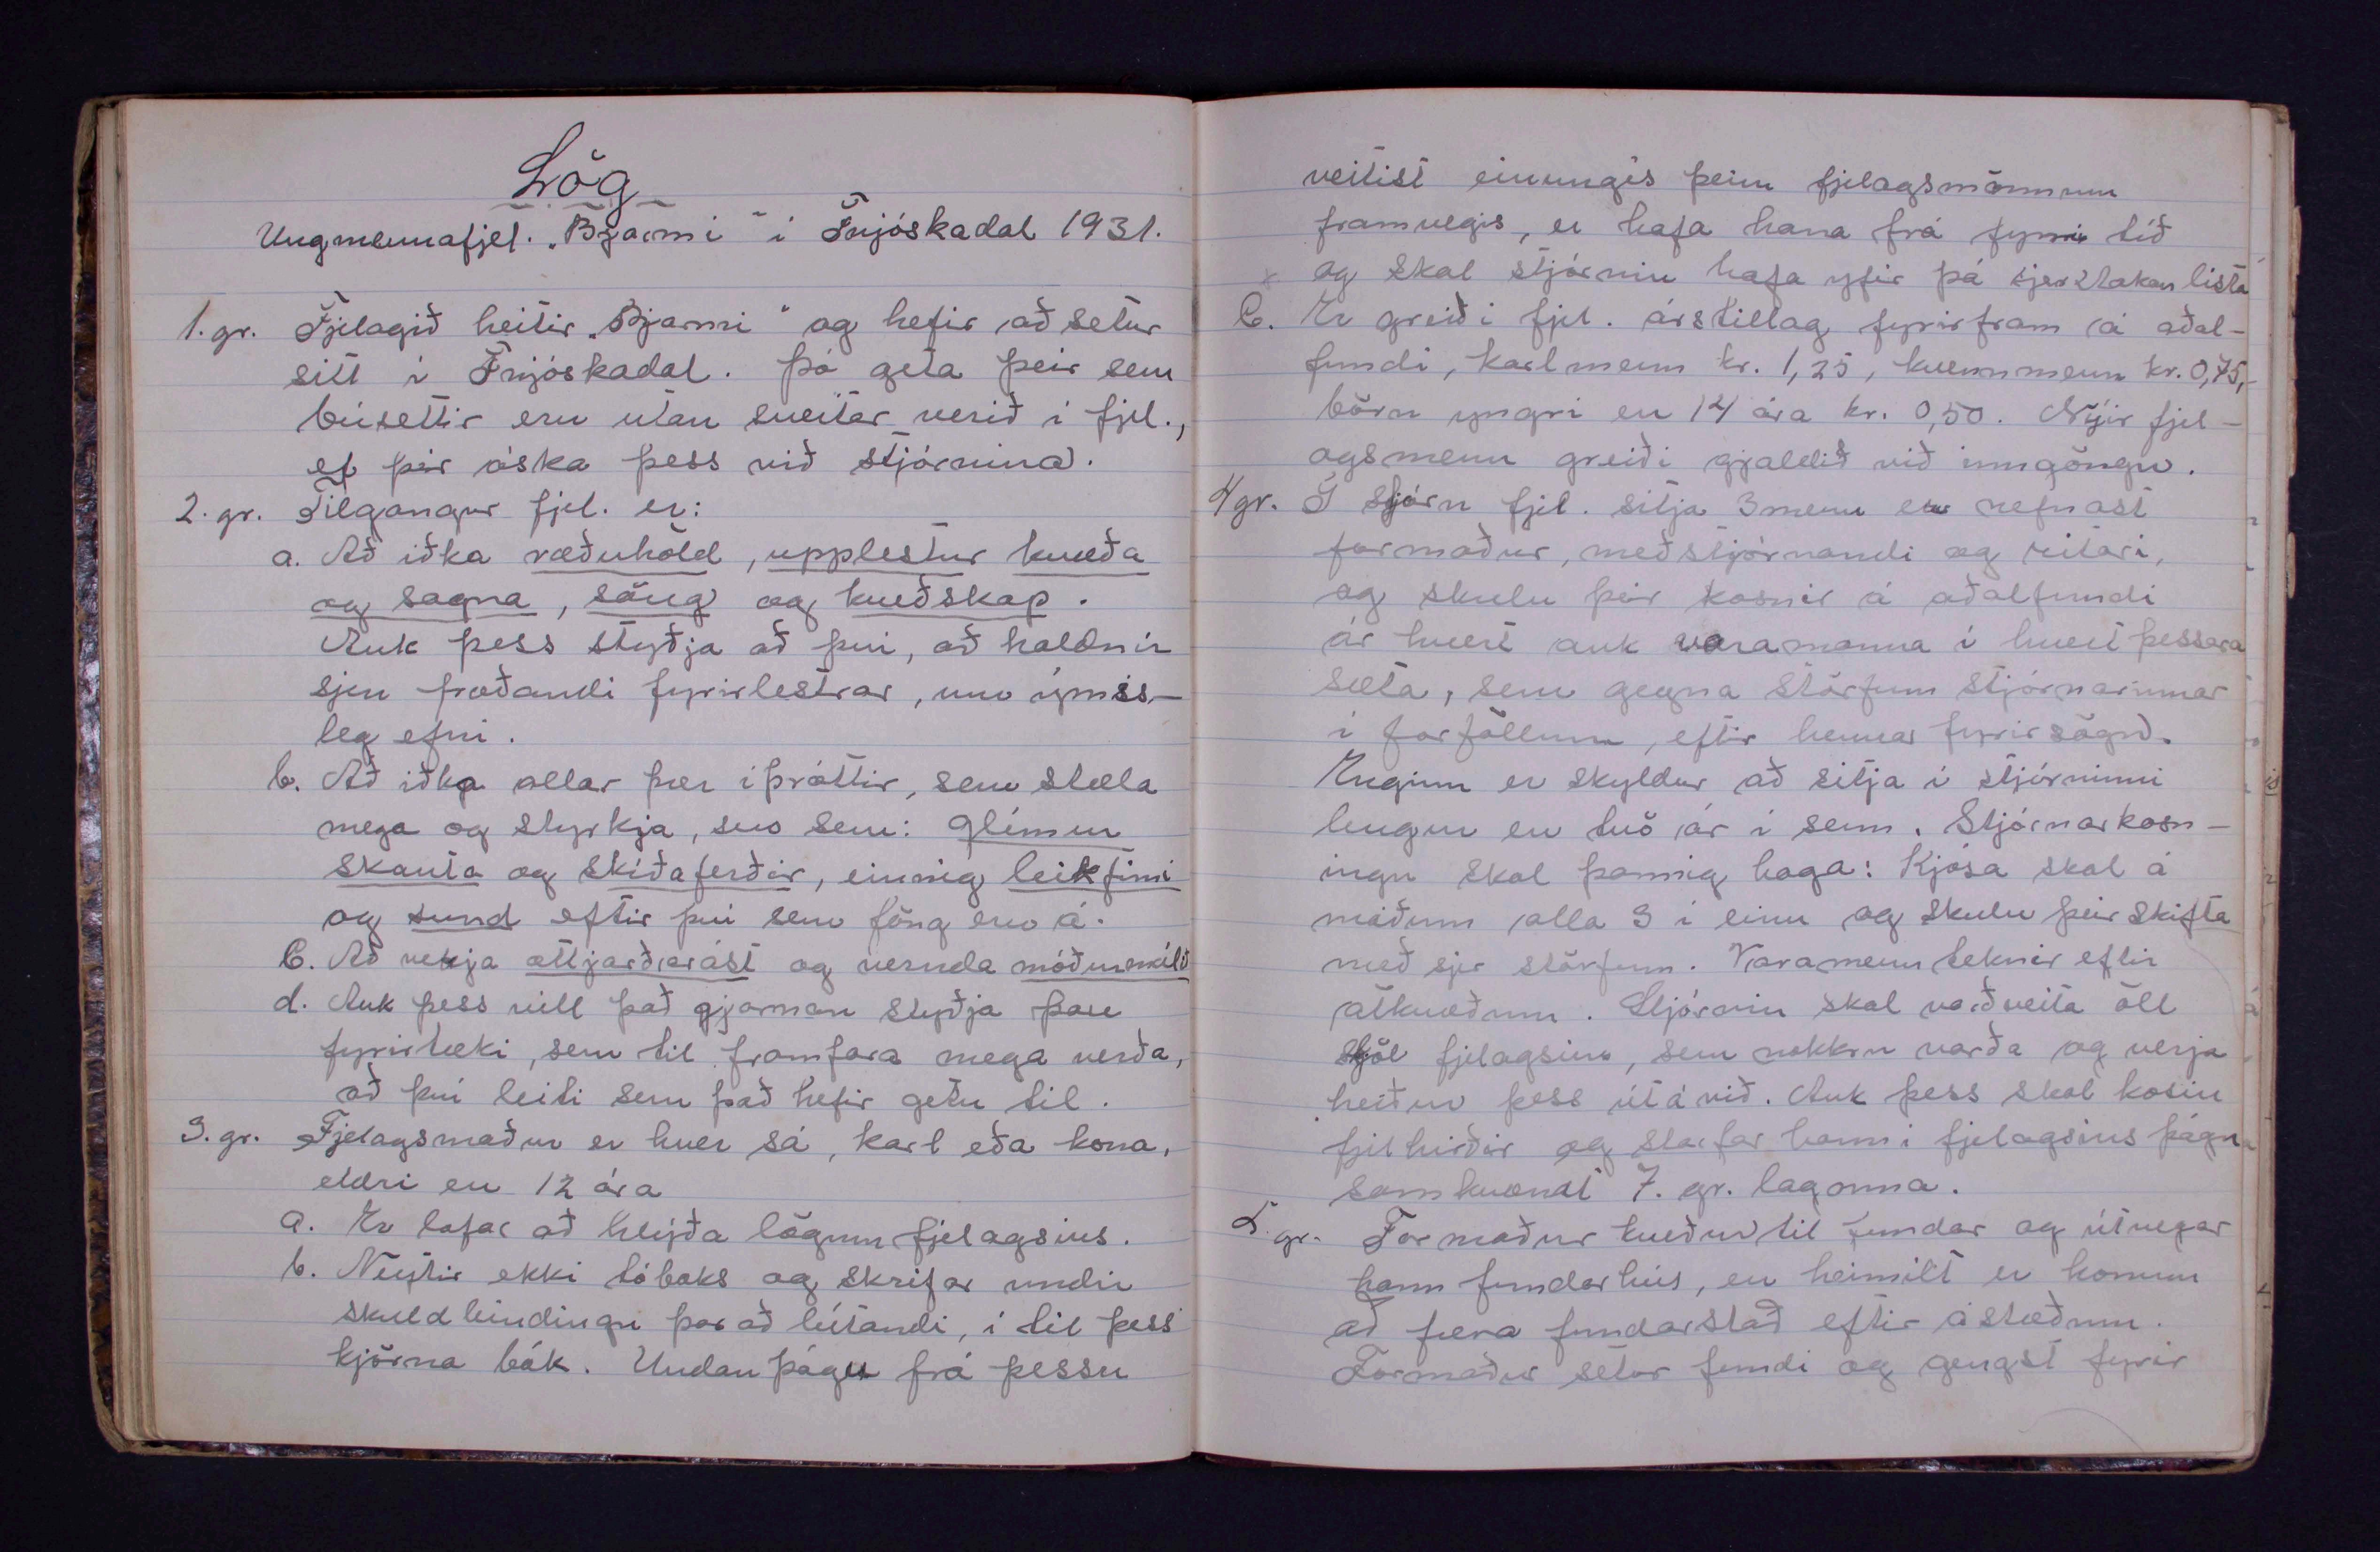 Lög
Ungmennafjel. „Bjarmi" í Fnjóskadal 1931.
1. gr. Fjelagið heitir „Bjarmi" og hefir aðsetur
sitt í Fnjóskadal. Þó geta þeir sem
búsettir eru utan sveitar verið í fjel.,
ef þeir óska þess við stjórnina.
2. gr. Tilgangur fjel. er:
a. Að iðka ræðuhöld, upplestur kvæða
og sagna, söng og kveðskap.
Auk þess styðja að því, að haldnir
sjeu fræðandi fyrirlestrar, um ýmis-
leg efni.
b. Að iðka allar þær íþróttir, sem stæla
mega og styrkja, svo sem: glímur
skauta og skíðaferðir, einnig leikfimi
og sund eftir því sem föng eru á.
C. Að vekja ættjarðarást og vernda móðurmálið
d. Auk þess vill það gjarnan styðja þau
fyrirtæki, sem til framfara mega verða,
að því leiti sem það hefir getu til.
3. gr. Fjelagsmaður er hver sá, karl eða kona,
eldri en 12 ára
a. Er lofar að hlýða lögum fjelagsins.
b. Neytir ekki tóbaks og skrifar undir
skuldbindingu þar að lútandi, í til þess
kjörna bók. Undanþágu frá þessu
veitist einungis þeim fjelagsmönnum
framvegis, er hafa hana frá fyrri tíð
x og skal stjórnin hafa yfir þá sjerstakan lista
C. Er greiði fjel. árstillag fyrirfram á aðal-
fundi, karlmenn kr. 1,25, kvennmenn kr. 0,75,-
börn yngri en 14 ára kr. 0,50. Nýir fjel-
agsmenn greiði gjaldið við inngöngu.
4 gr. Í stjórn fjel. sitja 3 menn er nefnast
formaður, meðstjórnandi og ritari,
og skulu þeir kosnir á aðalfundi
ár hvert auk varamanna í hvert þessara
sæta, sem gegna störfum stjórnarinnar
í forföllum, eftir hennar fyrirsögn.
Enginn er skyldur að sitja í stjórninni
lengur en tvö ár í senn. Stjórnarkosn-
ingu skal þannig haga: Kjósa skal á
miðum alla 3 í einu og skulu þeir skifta
með sjer störfum. Varamenn teknir eftir
atkvæðum. Stjórnin skal varðveita öll
skjöl fjelagsins, sem nokkru varða og verja
heiður þess útávið. Auk þess skal kosin
fjehirðir og starfar hann í fjelagsins þágu
samkvæmt 7. gr. laganna.
5. gr. Formaður kveður til fundar og útvegar
hann fundarhús, en heimilt er honum
að færa fundarstað eftir ástæðum.
Formaður setur fundi og gengst fyrir